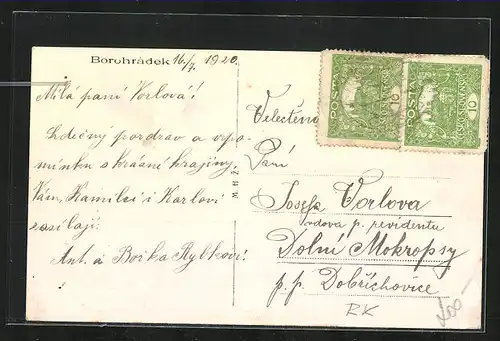 Borohrádek 16/7. 1920.
Milá paní Vorlová!
Srdečný pozdrav a vzpo-
mínku s krásné krajiny
Vám, Kamilci i Karlovi
zasílají
Ant. a Bož. ka Rybkovi.
M H Ž
POSTA
10
ČESKO-SLOVENSKÁ
POSTA
10
ČESKO-SLOVENSKÁ
Velectěná
Paní
Josefa Vorlova
vdova p. revidentu
Dolní Mokropsy
p. p. Dobřichovice
RK
200-